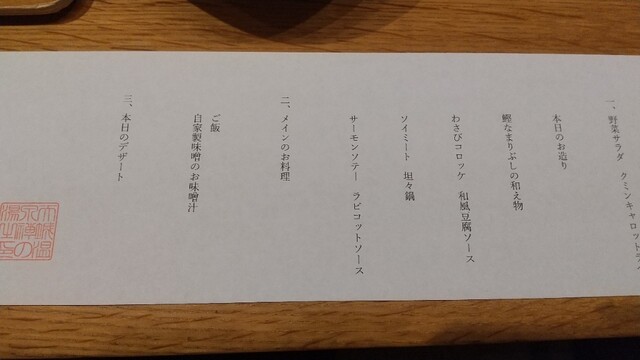 一、野菜サラダ クミンキャロットラ
本日のお造り
鰹なまりぶしの和え物
わさびコロッケ 和風豆腐ソース
ソイミート 坦々鍋
サーモンソテー ラビコットソース
二、メインのお料理
ご飯
自家製味噌のお味噌汁
三、本日のデザート